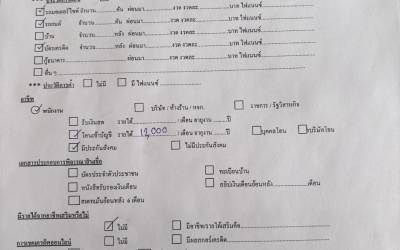 รถมอเตอร์ไซค์ จำนวน คัน ผ่อนมา งวด งวดละ บาท ไฟแนนซ์
รถยนต์ จำนวน คัน ผ่อนมา งวด งวดละ บาท ไฟแนนซ์
บ้าน จำนวน หลัง ผ่อนมา งวด งวดละ บาท ไฟแนนซ์
บัตรเครดิต จำนวน หลัง ผ่อนมา งวด งวดละ บาท ไฟแนนซ์
กู้ธนาคาร งวด งวดละ บาท ไฟแนนซ์
อื่น ๆ
*** ประวัติการค้ำ ไม่มี มี ไฟแนนซ์
อาชีพ
พนักงาน บริษัท / ห้างร้าน / หจก. ราชการ / รัฐวิสาหกิจ
รับเงินสด รายได้ /เดือน อายุงาน ปี
โอนเข้าบัญชี รายได้ 12,000 /เดือน อายุงาน ปี บุคคลโอน บริษัทโอน
มีประกันสังคม ไม่มีประกันสังคม
เอกสารประกอบการพิจารณาสินเชื่อ
บัตรประจำตัวประชาชน ทะเบียนบ้าน
หนังสือรับรองเงินเดือน สลิปเงินเดือนย้อนหลัง เดือน
สเตทเม้นย้อนหลัง 6 เดือน
ไม่มี มีอาชีพรายได้เสริมคือ
ไม่มี